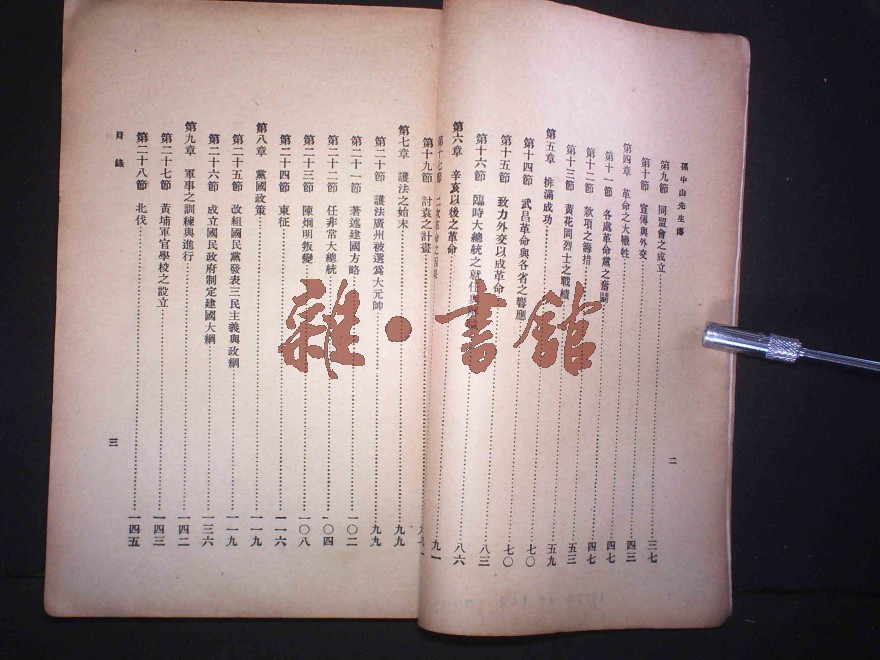 孫中山先生傳
第九節 同盟會之成立 三七
第十節 宣傳與外交
第四章 革命之大犧牲 四三
第十一節 各處革命黨之奮鬭 四七
第十二節 款項之籌措 四七
第十三節 黃花岡烈士之戰績 五三
第五章 排滿成功 五九
第十四節 武昌革命與各省之響應 七〇
第十五節 致力外交以成革命 七〇
第十六節 臨時大總統之就任與 八三
第六章 辛亥以後之革命 八六
第十七節 二次革命之 九一
二
第十九節 討袁之計畫
第七章 護法之始末 九九
第二十節 護法廣州被選爲大元帥 九九
第二十一節 著述建國方略 一〇二
第二十二節 任非常大總統 一〇四
第二十三節 陳烱明叛變 一〇八
第二十四節 東征 一一六
第八章 黨國政策 一一九
第二十五節 改組國民黨發表三民主義與政綱 一一九
第二十六節 成立國民政府制定建國大綱 一三六
第九章 軍事之訓練與進行 一四二
第二十七節 黃埔軍官學校之設立 一四三
第二十八節 北伐 一四五
目錄
三
雜·書館